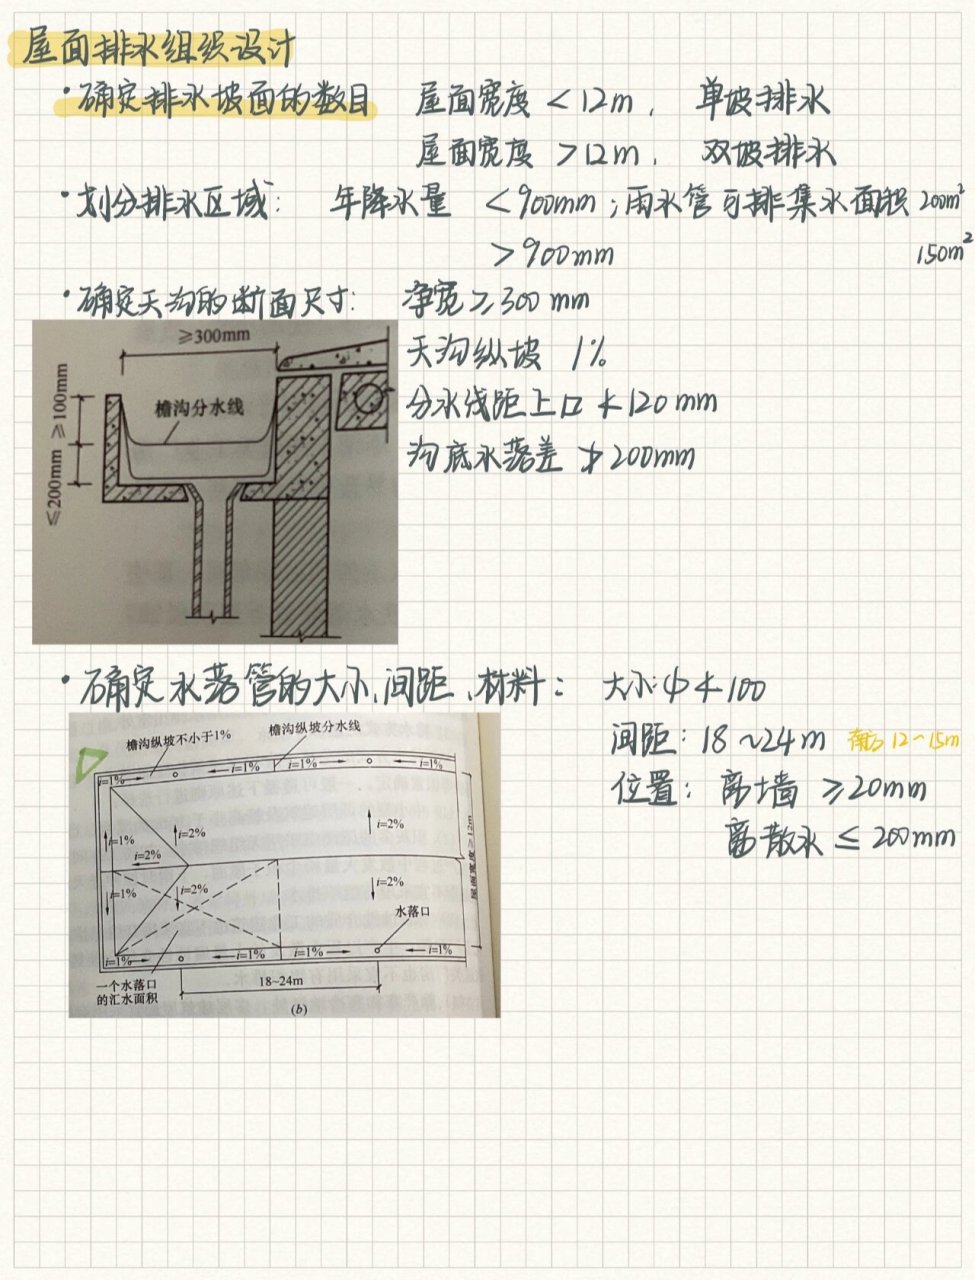 屋面排水组织设计
·确定排水坡面的数目 屋面宽度 < 12m， 单坡排水
屋面宽度 > 12m， 双坡排水
·划分排水区域： 年降水量 < 900mm；雨水管可排集水面积 200m²
> 900mm 150m²
·确定天沟的断面尺寸： 净宽 ≥ 300 mm
天沟纵坡 1%
分水线距上口 ≮ 120 mm
沟底水落差 ≯ 200mm
≥300mm
≥100mm
檐沟分水线
≤200mm
·确定水落管的大小、间距、材料： 大小：φ ≮ 100
间距：18 ~24m 南方 12~15m
位置：离墙 ≥20mm
离散水 ≤ 200mm
檐沟纵坡不小于1% 檐沟纵坡分水线
i=1% i=1% i=1% i=1%
i=2%
i=1% i=2%
i=2%
i=1% i=2% i=2%
水落口
i=1% i=1% i=1% i=1%
18~24m
一个水落口
的汇水面积
(b)